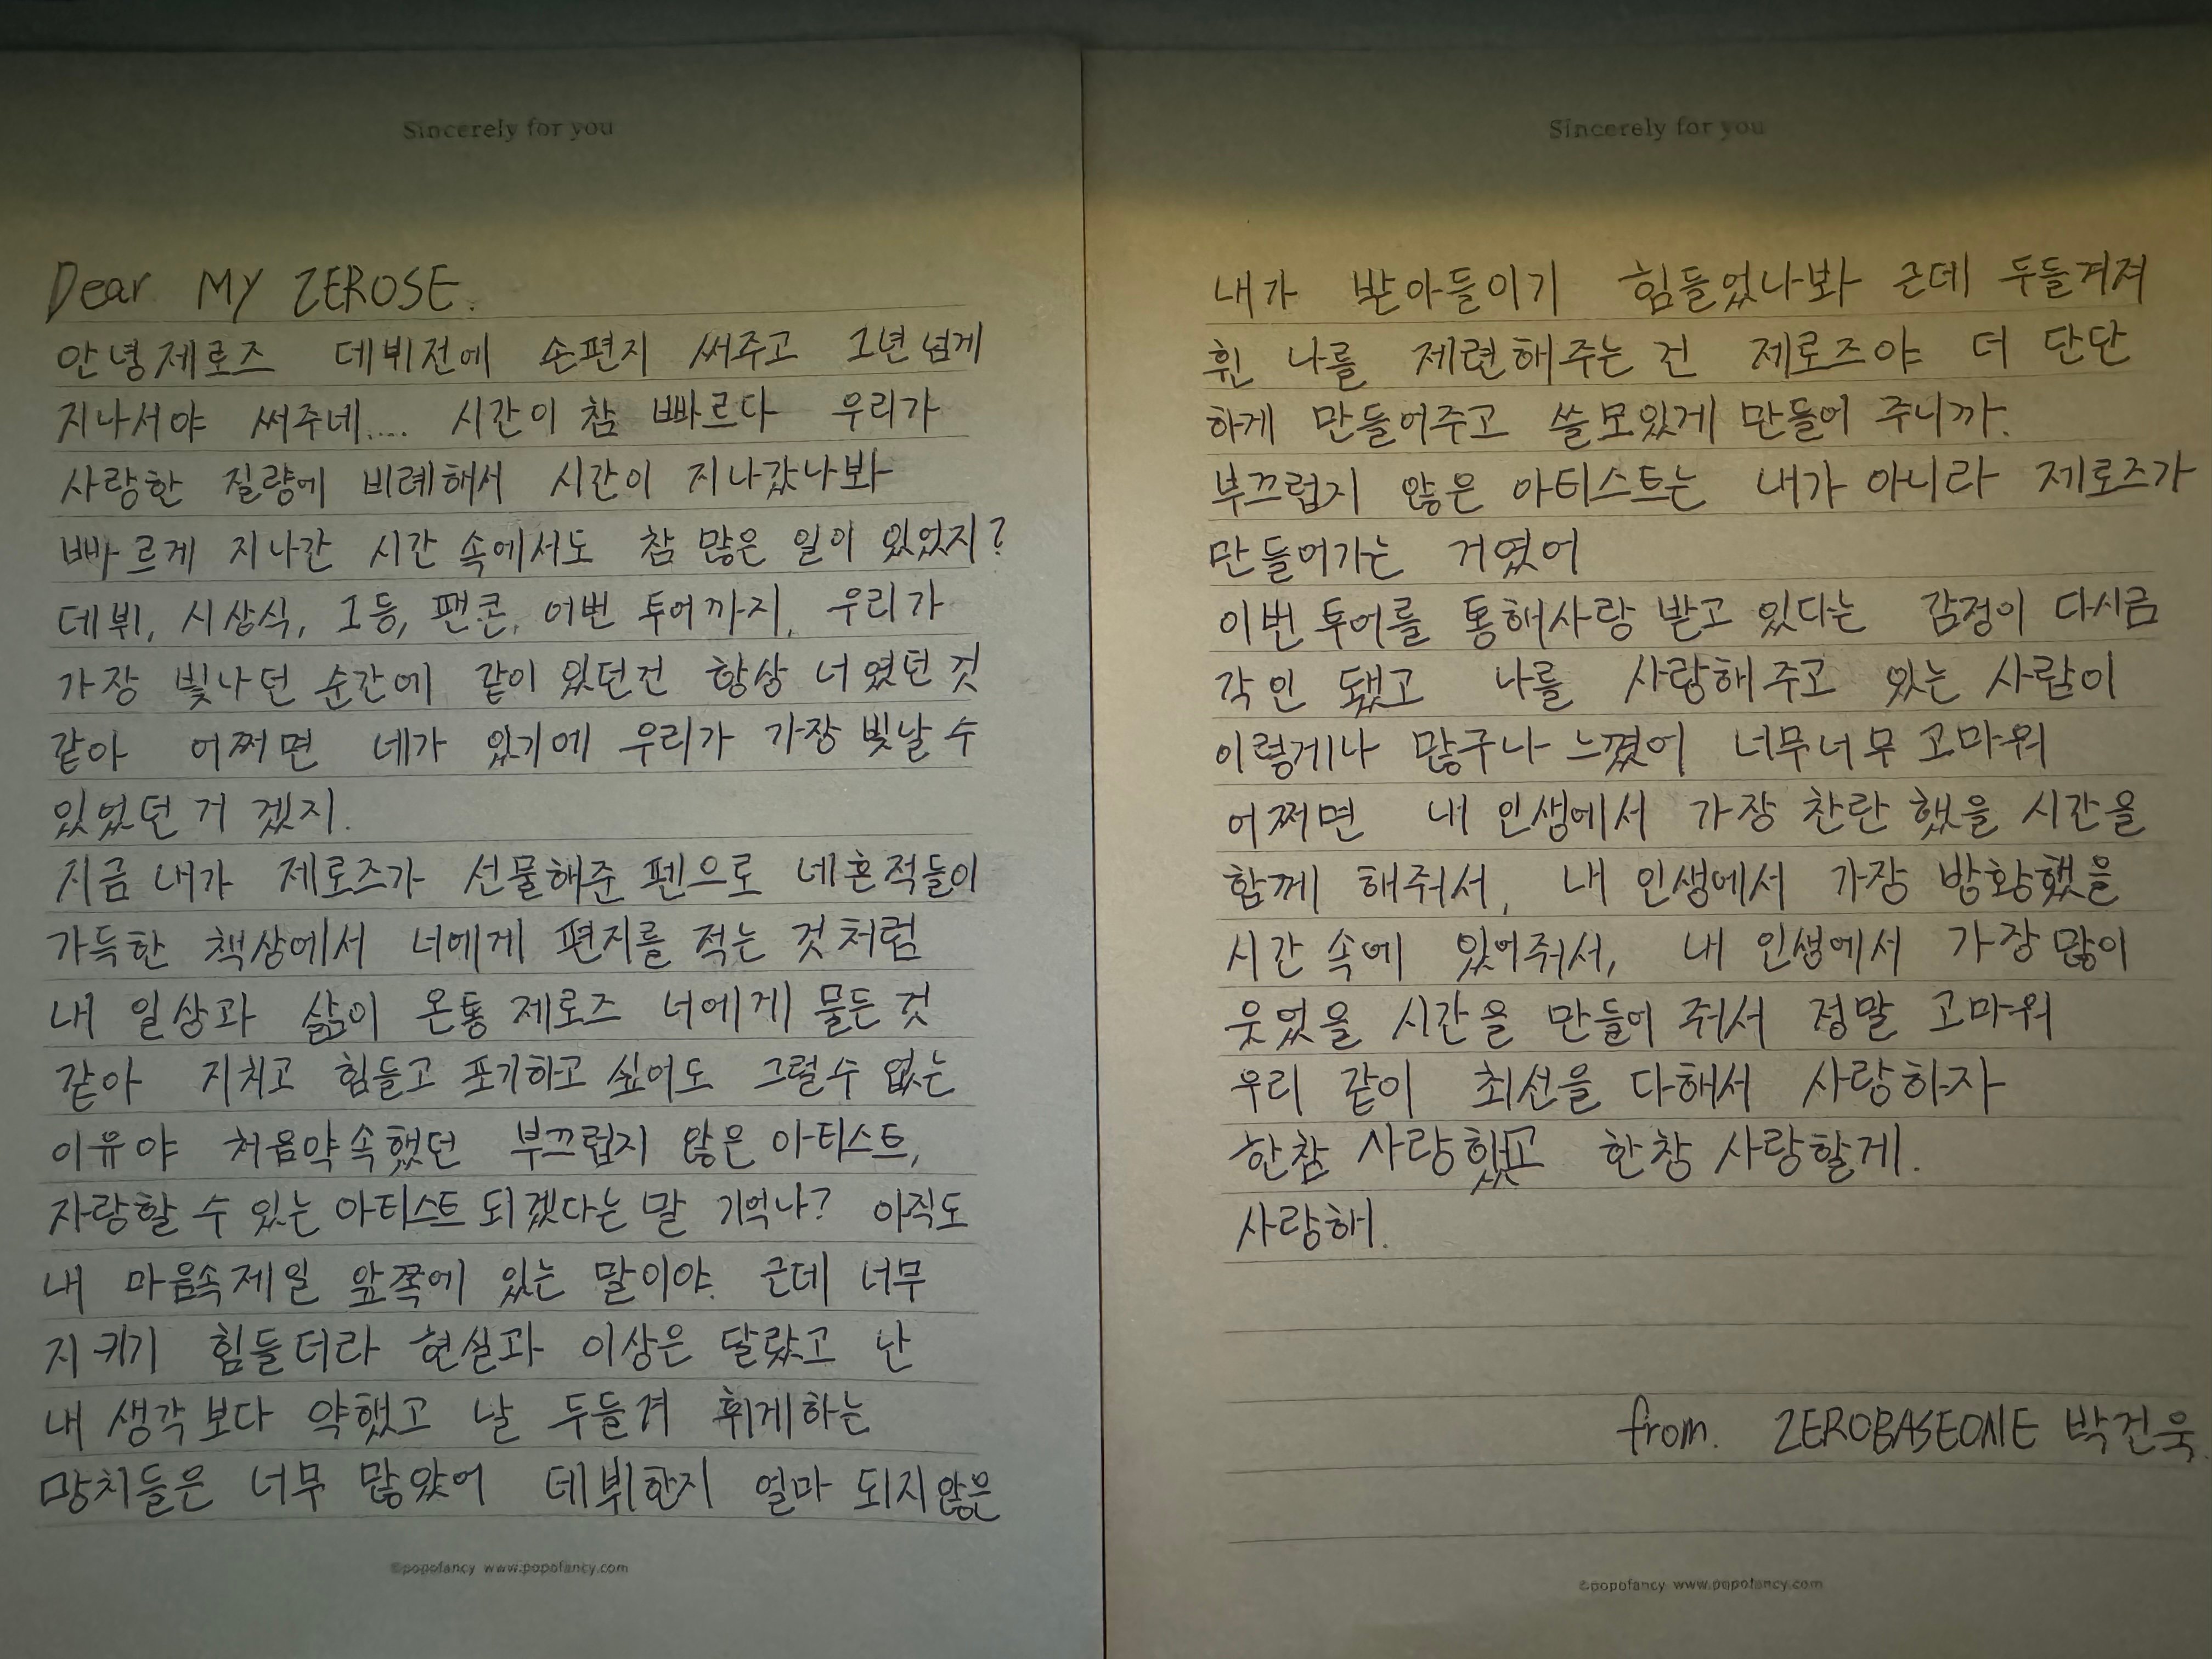 Sincerely for you
Dear MY ZEROSE.
안녕제로즈 데뷔전에 손편지 써주고 1년넘게
지나서야 써주네.... 시간이 참 빠르다 우리가
사랑한 질량에 비례해서 시간이 지나갔나봐
빠르게 지나간 시간 속에서도 참 많은 일이 있었지?
데뷔, 시상식, 1등, 팬콘, 이번 투어까지, 우리가
가장 빛나던 순간에 같이 있던건 항상 너였던 것
같아 어쩌면 네가 있기에 우리가 가장 빛날 수
있었던 거 겠지.
지금 내가 제로즈가 선물해준 펜으로 네흔적들이
가득한 책상에서 너에게 편지를 적는 것처럼
내 일상과 삶이 온통 제로즈 너에게 물든 것
같아 지치고 힘들고 포기하고 싶어도 그럴수 없는
이유야 처음약속했던 부끄럽지 않은 아티스트,
자랑할 수 있는 아티스트 되겠다는 말 기억나? 아직도
내 마음속제일 앞쪽에 있는 말이야. 근데 너무
지키기 힘들더라 현실과 이상은 달랐고 난
내 생각보다 약했고 날 두들겨 휘게하는
망치들은 너무 많았어 데뷔한지 얼마 되지않은
©popofancy www.popofancy.com
Sincerely for you
내가 받아들이기 힘들었나봐 근데 두들겨져
휜 나를 제련해주는 건 제로즈야 더 단단
하게 만들어주고 쓸모있게 만들어 주니까.
부끄럽지 않은 아티스트는 내가 아니라 제로즈가
만들어가는 거였어
이번투어를 통해사랑 받고 있다는 감정이 다시금
각인 됐고 나를 사랑해주고 있는 사람이
이렇게나 많구나 느꼈어 너무너무 고마워
어쩌면 내 인생에서 가장 찬란했을 시간을
함께 해줘서, 내 인생에서 가장 방황했을
시간 속에 있어줘서, 내 인생에서 가장 많이
웃었을 시간을 만들어 줘서 정말 고마워
우리 같이 최선을 다해서 사랑하자
한참 사랑했고 한창 사랑할게.
사랑해.
from. ZEROBASEONE 박건욱.
©popofancy www.popofancy.com